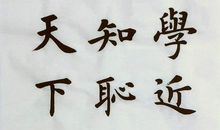 學近
知恥
天下